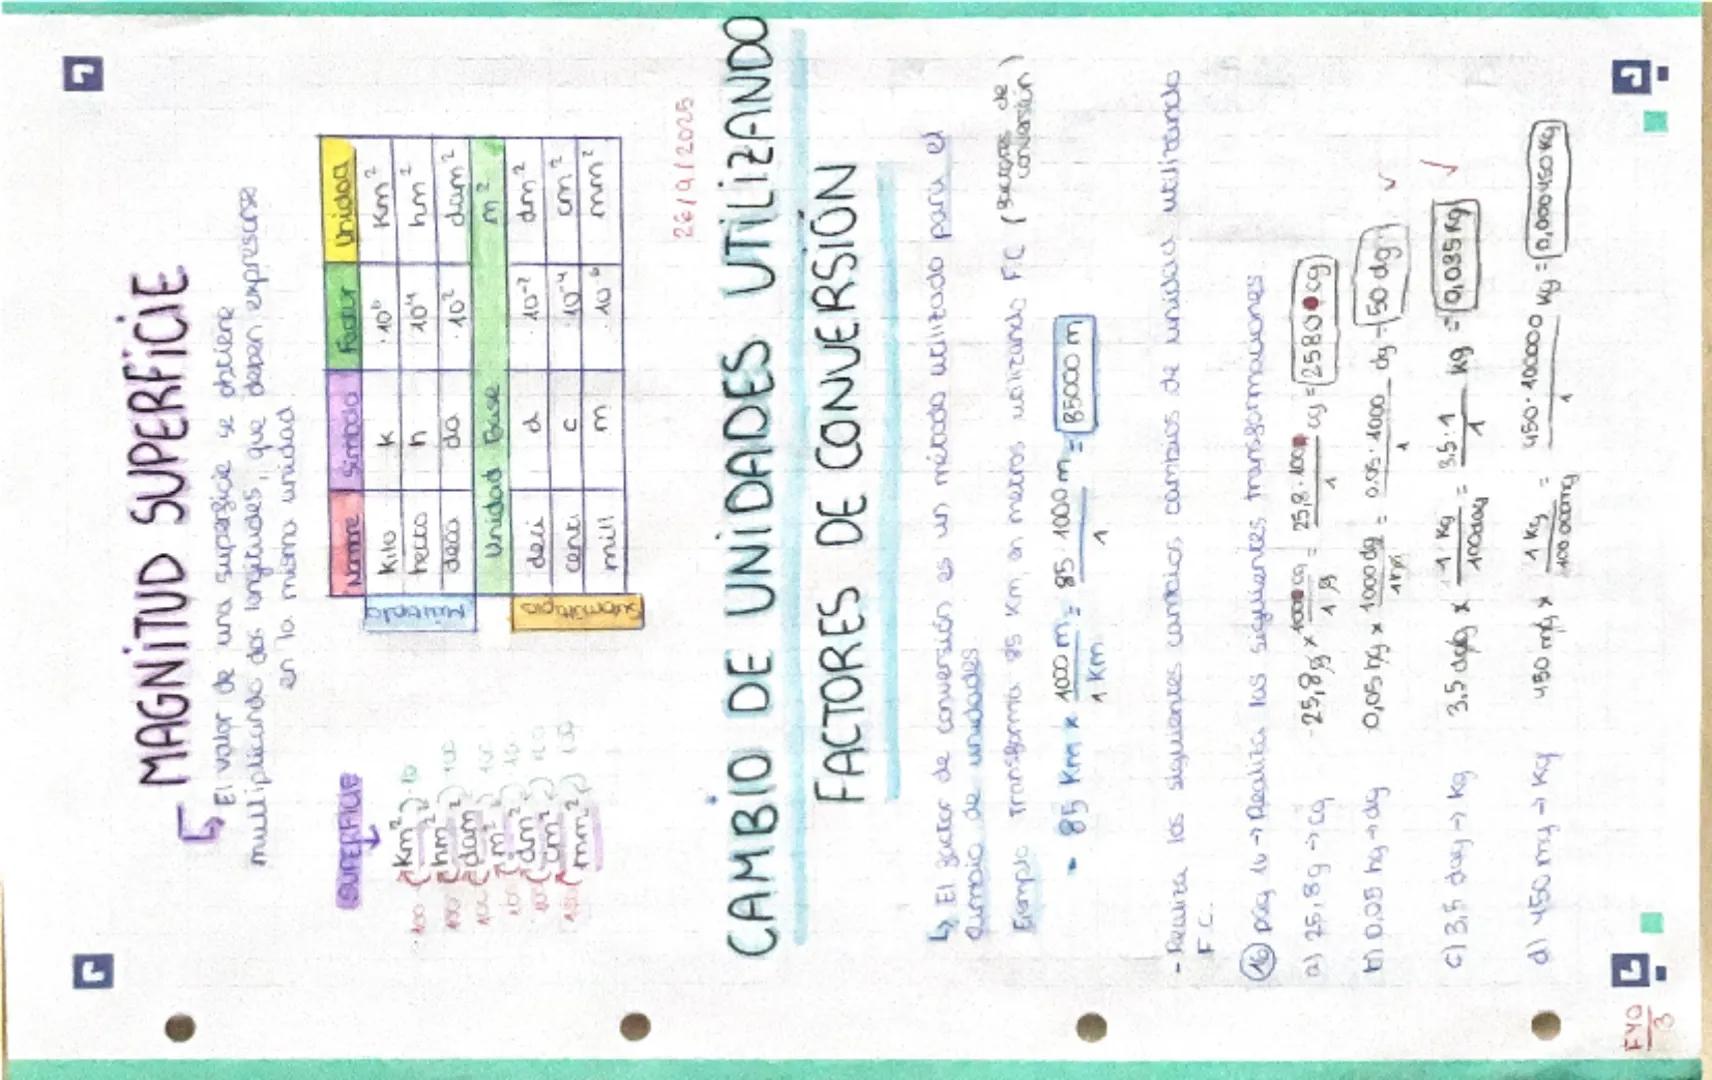 MAGNITUD SUPERFICIE
↳ El valor de una superficie se obtiene
multiplicando dos longitudes, que deben expresarse
en la misma unidad
SUPERFICIE
km²
hm²
dam²
m²
dm²
cm²
mm²
Nombre Símbolo Factor Unidad
Múltiplo
Kilo k 10⁶ Km²
hecto h 10⁴ hm²
deca da 10² dam²
Unidad Base m²
Submúltiplo
deci d 10⁻² dm²
centi c 10⁻⁴ cm²
mili m 10⁻⁶ mm²
26/9/2025
CAMBIO DE UNIDADES UTILIZANDO
FACTORES DE CONVERSIÓN
↳ El factor de conversión es un método utilizado para el
cambio de unidades
Ejemplo Transforma 85 Km en metros utilizando F.C (factores de conversión)
• 85 Km x 1000 m / 1 Km = 85 · 1000 m / 1 = 85000 m
- Realiza los siguientes cambios de unidad utilizando
F.C.
16 pág 16 → Realiza las siguientes transformaciones
a) 25,8g → cg 25,8g x cg / 1 g = 25,8 · 100 / 1 cg = 2580 cg
b) 0,05 hg → dg 0,05 hg x 1000 dg / 1 hg = 0,05 · 1000 / 1 dg = 50 dg ✓
c) 3,5 dag → kg 3,5 dag x 1 kg / 100 dag = 3,5 · 1 / 1 kg = 0,035 kg ✓
d) 450 mg → Kg 450 mg x 1 kg / mg = 450 · / 1 kg = 0,000450 kg
FYQ
3